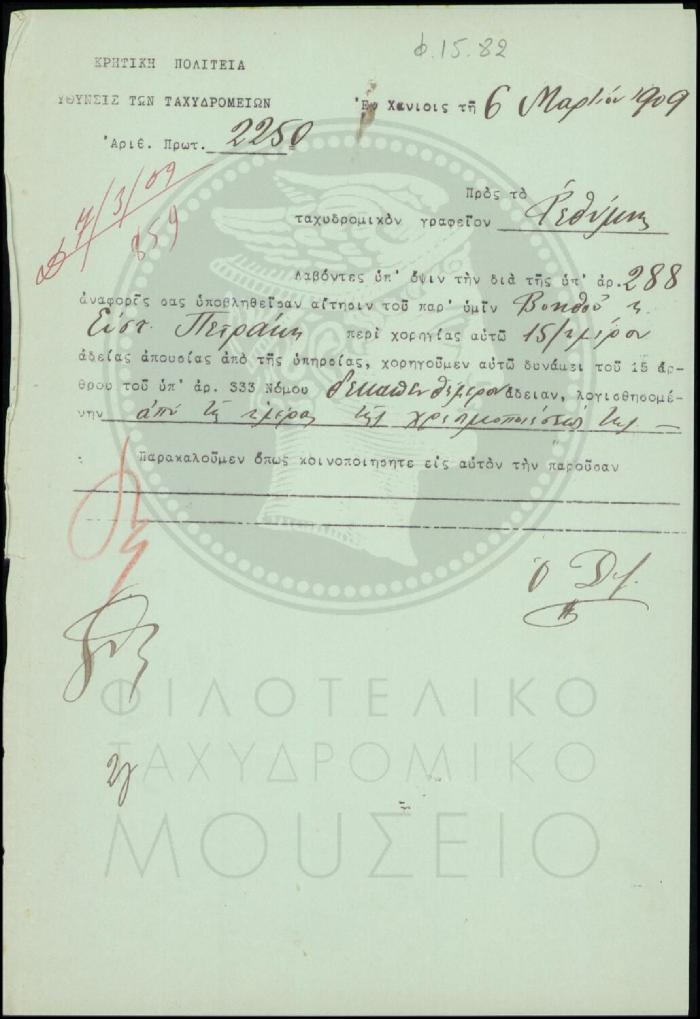 φ.15.82
ΚΡΗΤΙΚΗ ΠΟΛΙΤΕΙΑ
ΥΘΥΝΣΙΣ ΤΩΝ ΤΑΧΥΔΡΟΜΕΙΩΝ
Ἐν Χανίοις τῇ 6 Μαρτίου 1909
Ἀριθ. Πρωτ. 2250
7/3/09
859
Πρὸς τὸ
ταχυδρομικὸν γραφεῖον Ρεθύμνης
Λαβόντες ὑπ' ὄψιν τὴν διὰ τῆς ὑπ' ἀρ. 288
ἀναφορᾶς σας ὑποβληθεῖσαν αἴτησιν τοῦ παρ' ὑμῖν Βοηθοῦ κ
Εὐστ. Πετράκη περὶ χορηγίας αὐτῷ 15/ημέρου
ἀδείας ἀπουσίας ἀπὸ τῆς ὑπηρσίας, χορηγοῦμεν αὐτῷ δυνάμει τοῦ 15 ἄρ-
θρου τοῦ ὑπ' ἀρ. 333 Νόμου δεκαπενθήμερον ἄδειαν, λογισθησομέ-
νην ἀπὸ τῆς ἡμέρας τῆς χρησιμοποιήσεώς της
Παρακαλοῦμεν ὅπως κοινοποιήσητε εἰς αὐτὸν τὴν παροῦσαν
ὁ Δ
ΦΙΛΟΤΕΛΙΚΟ
ΤΑΧΥΔΡΟΜΙΚΟ
ΜΟΥΣΕΙΟ